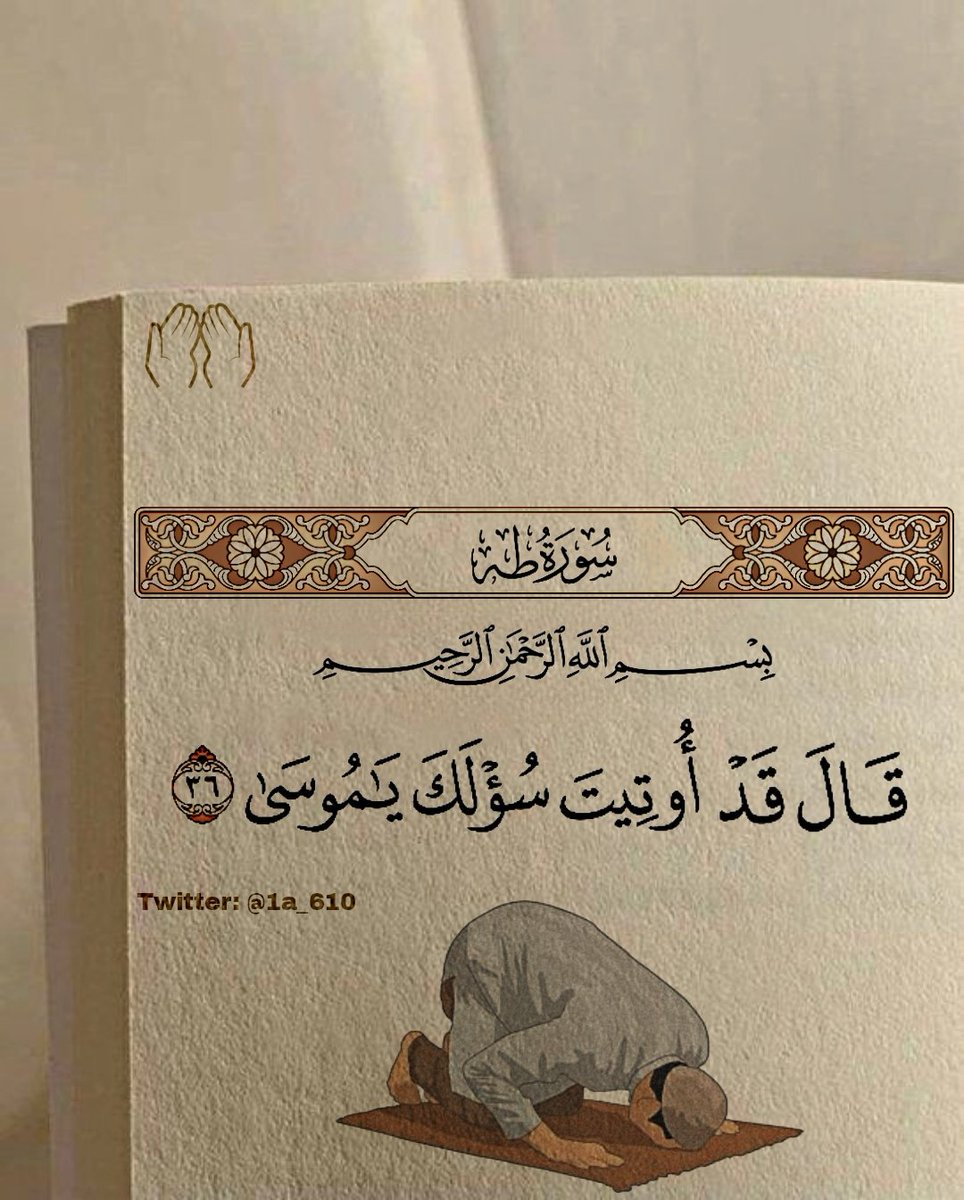 سُورَةُ طه
بِسْمِ ٱللَّهِ ٱلرَّحْمَٰنِ ٱلرَّحِيمِ
قَالَ قَدْ أُوتِيتَ سُؤْلَكَ يَٰمُوسَىٰ ٣٦
Twitter: @1a_610